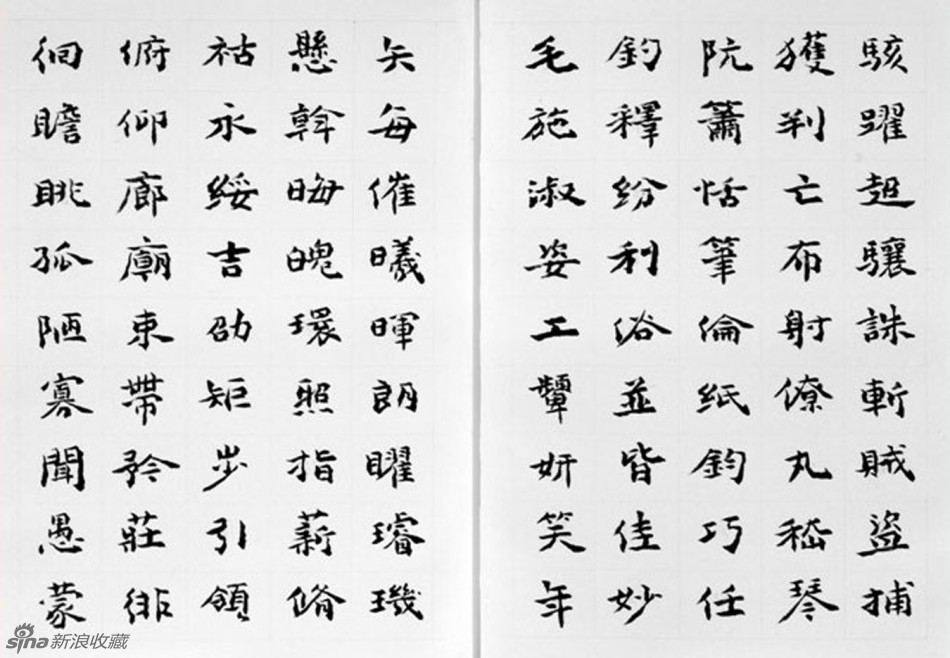 駭躍超驤誅斬賊盜捕
獲判亡布射僚丸嵇琴
阮簫恬筆倫紙鈞巧任
釣釋紛利俗並皆佳妙
毛施淑姿工顰妍笑年
矢每催曦暉朗曜璿璣
懸斡晦魄環照指薪脩
祜永綏吉劭矩步引領
俯仰廊廟束帶矜莊徘
徊瞻眺孤陋寡聞愚蒙
sina新浪收藏